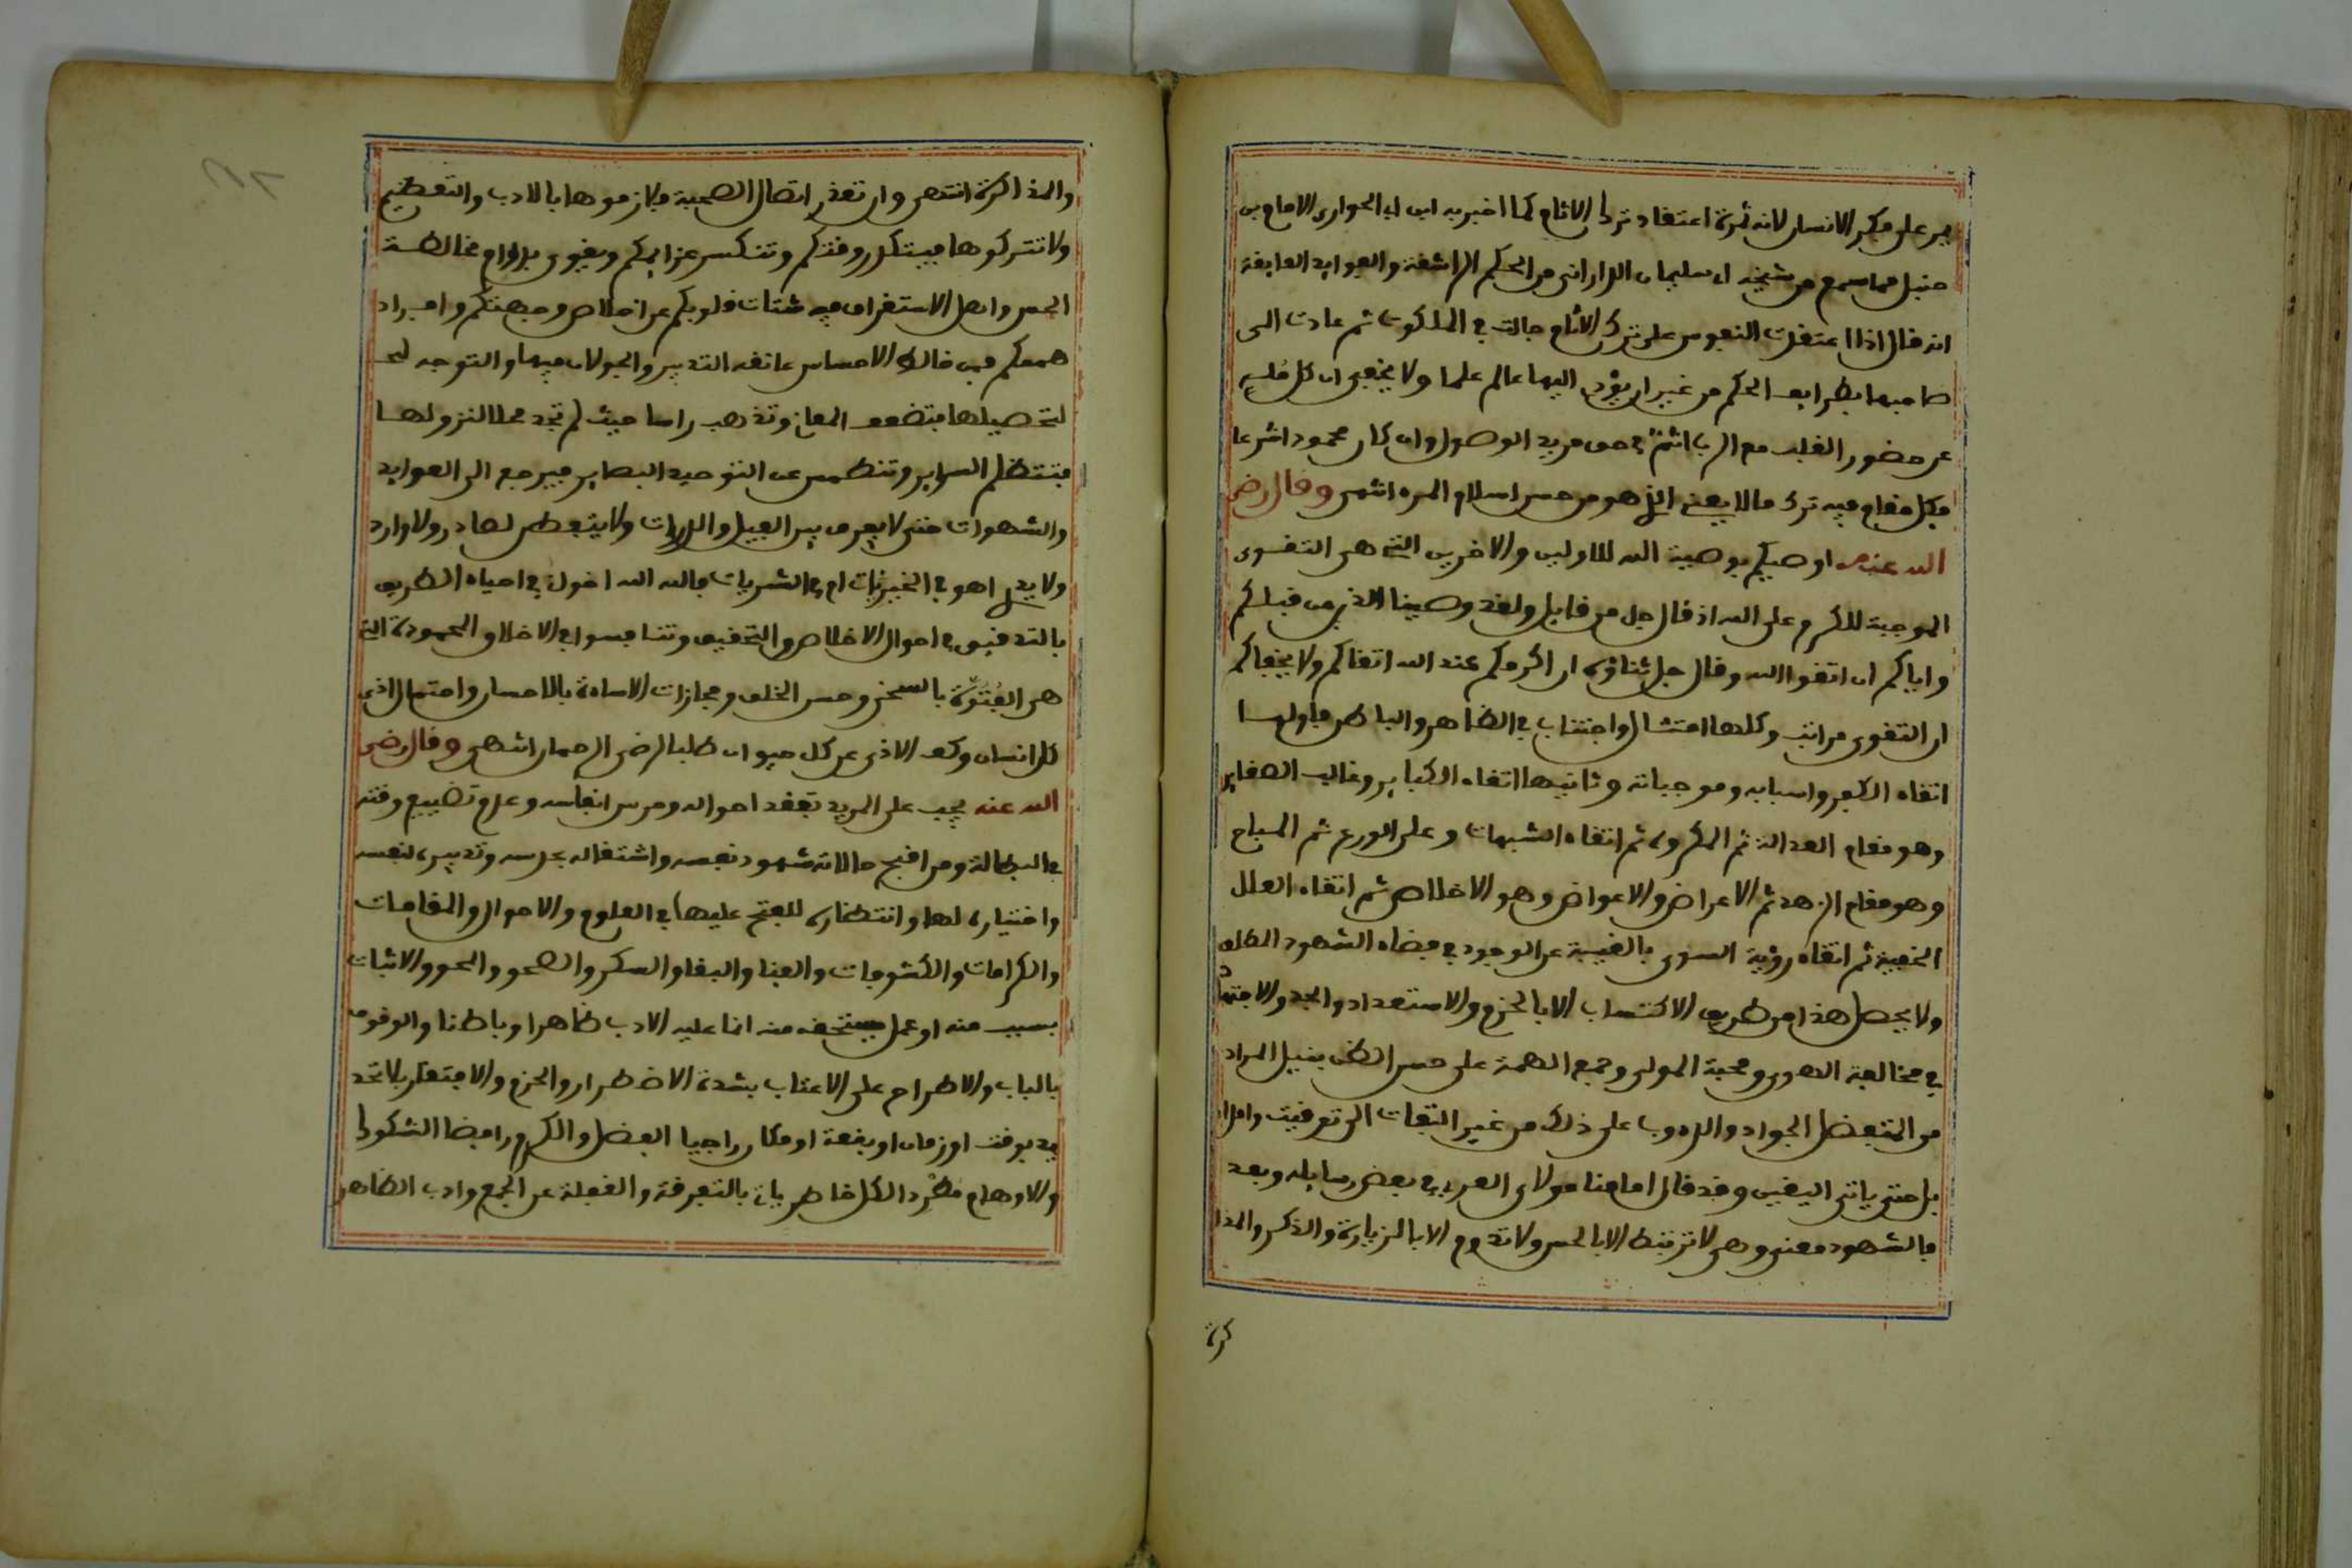 يرد على فكر الانسان لانه ثمرة اعتقاد ترك الاثام كما اخبر به ابن ابي الحواري الامام بن
حنبل مما سمع من شيخه ابي سليمان الداراني من الحكم الرائقة والفوايد الفايقة
انه قال اذا اعتقدت النفوس على ترك الاثام جالت في الملكوت ثم عادت الى
صاحبها بطرايف الحكم من غير ان يؤدي اليها عالم علما ولا يخفى ان كل مُلهٍ
عن حضور القلب مع الرب اثمٌ في حق مريد الوصول وان كان محمودا شرعا
فكل مقام فيه ترك ما لا يعني الذي هو من حسن اسلام المرء انتهى وقال رضي
الله عنه اوصيكم بوصية الله للاولين والاخرين التي هي التقوى
الموجبة للكرم على الله اذ قال جل من قايل ولقد وصينا الذين من قبلكم
واياكم ان اتقوا الله وقال جل ثناؤه ان اكرمكم عند الله اتقاكم ولا يخفاكم
ان التقوى مراتب وكلها امتثال واجتناب في الظاهر والباطن فاولها
اتقاء الكفر واسبابه وموجباته وثانيها اتقاء الكباير وغالب الصغاير
وهو مقام العدالة ثم المكروه ثم اتقاء الشبهات وعلى الورع ثم المباح
وهو مقام الزهد ثم الاعراض والاعواض وهو الاخلاص ثم اتقاء العلل
الخفية ثم اتقاء رؤية السوى بالغيبة عن الوجود في فضاء الشهود المطلق
ولا يحصل هذا من طريق الاكتساب الا بالحزم والاستعداد والجد والاجتهاد
في مخالفة الهوى ومحبة المولى وجمع الهمة على حسن الظن بنيل المراد
من المتفضل الجواد والدءوب على ذلك من غير التفات الى توقيت وامداد
بل حتى ياتي اليقين وقد قال امامنا مولاي العربي في بعض رسايله وبعد
فالشهود معنى وهي لا ترتبط الا بالحس ولا تدوم الا بالزيارة والذكر والمذا
كرة
والمذاكرة انتهى وان تعذر اتصال الصحبة فلازموها بالادب والتعظيم
ولا تتركوها فيتكدر وقتكم وتنكسر عزايمكم ويقوى بدوام مخالطة
الحس واهل الاستغراق فيه شتات قلوبكم عن اخلاص وجهتكم وافراد
هممكم فمن خالط الاحساس عانقه التدبير والجولان فيها والتوجه لها
لتحصيلها فتضعف المعاني وتذهب راسا حيث لم تجد محلا لنزولها
فتنتظلم السراير وتنطمس عن التوحيد البصاير فيرجع الى العوايد
والشهوات حتى لا يعرف بين القبيل والدبرات ولا يتفطن لصادر ولا وارد
ولا يدر اهو في الخيريات ام في الشريات فالله الله اخواني في احياء الطريق
بالتدقيق في احوال الاخلاص والتحقيق وتنافسوا في الاخلاق المحمودة التي
هي الفُتُوّة بالسخى وحسن الخلق ومجازات الاساءة بالاحسان واحتمال اذى
كل انسان وكف الاذى عن كل حيوان طلبا لرضى الرحمان انتهى وقال رضي
الله عنه يجب على المريد تفقد احواله وحرس انفاسه وعدم تضييع وقته
في البطالة ومن اقبح حالاته شهود نفسه واشتغاله بحرسه وتدبيره لنفسه
واختياره لها وانتظاره للفتح عليها في العلوم والاحوال والمقامات
والكرامات والكشوفات والفنا والبقا والسكر والصحو والمحو والاثبات
بسبب منه او عمل يستحقه منه انما عليه الادب ظاهرا وباطنا والوقوف
بالباب والاطراح على الاعتاب بشدة الاضطرار والحزم والافتقار بلا تحد
يد بوقت او زمان او بقعة او مكان راجيا الفضل والكرم رافضا الشكوك
والاوهام مطرد الكل خاطر ياته بالتفرقة والغفلة عن الجمع وادب الظاهر